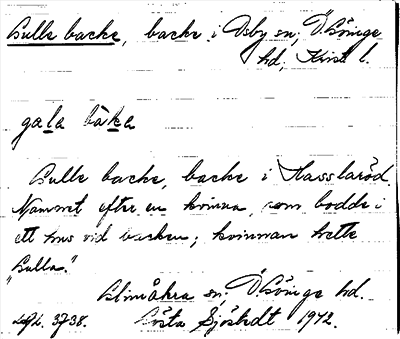 Gulle backe, backe i Osby sn, Ö. Göinge
hd, Krist. l.
gala bàka
Gulle backe, backe i Hasslaröd.
Namnet efter en kvinna, som bodde i
ett hus vid backen; kvinnan hette
"Gulla".
Glimåkra sn, Ö. Göinge hd.
3738. Gösta Sjöstedt 1942.